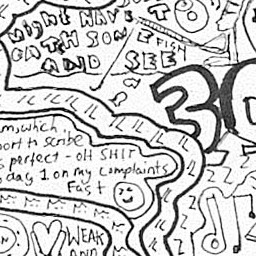 Might HAVE TO
CATCH SOM E FISH
AND SEE
30
mswhich..
port to scribe
s perfect - OH SHIT
day 1 on my complaints
Fast
WEAK
AND